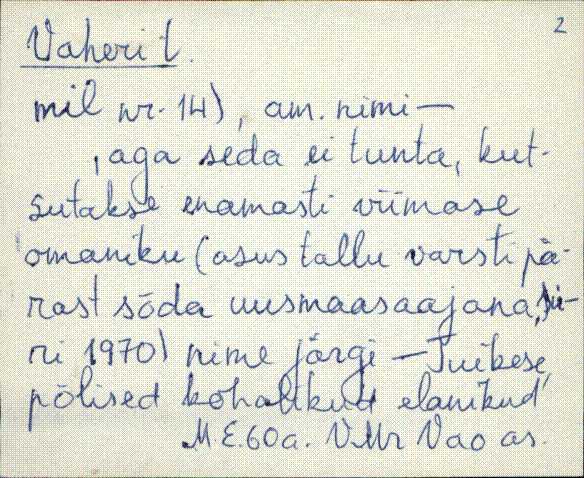 2
Vaheri t.
mil nr. 14), am. nimi —
, aga seda ei tunta, kut-
sutakse enamasti viimase
omaniku (asus tallu varsti pä-
rast sõda uusmaasaajana, su-
ri 1970) nime järgi — Tuikese,
põlised kohalikud elanikud
M.E. 60 a. VMr Vao as.